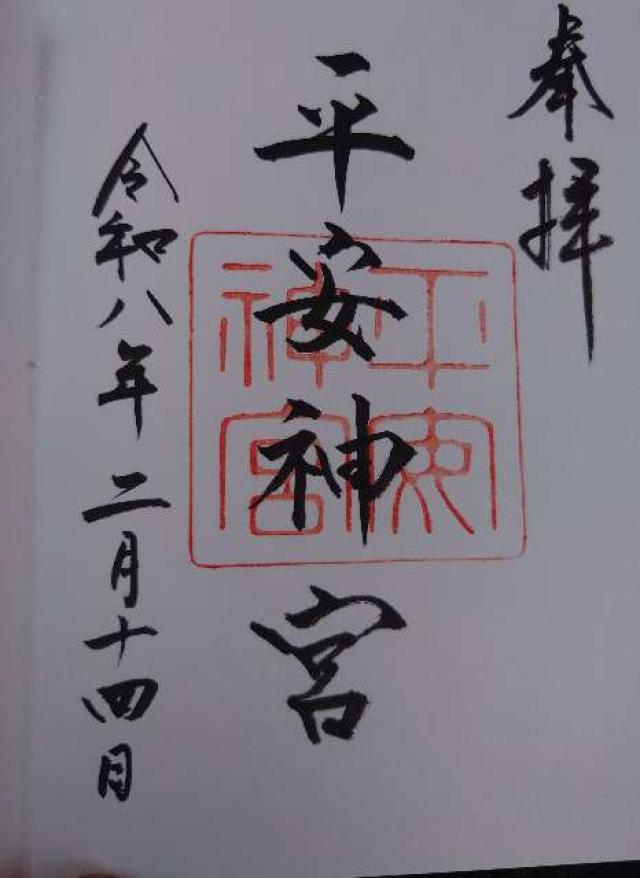 奉拝
平安神宮
平安神宮
令和八年二月十四日